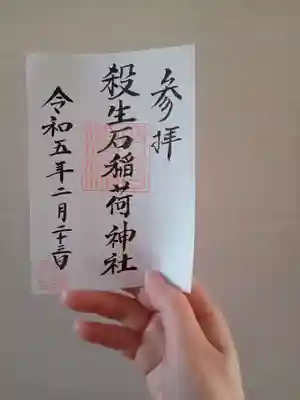 参拝
殺生石稲荷神社
令和五年二月二十三日